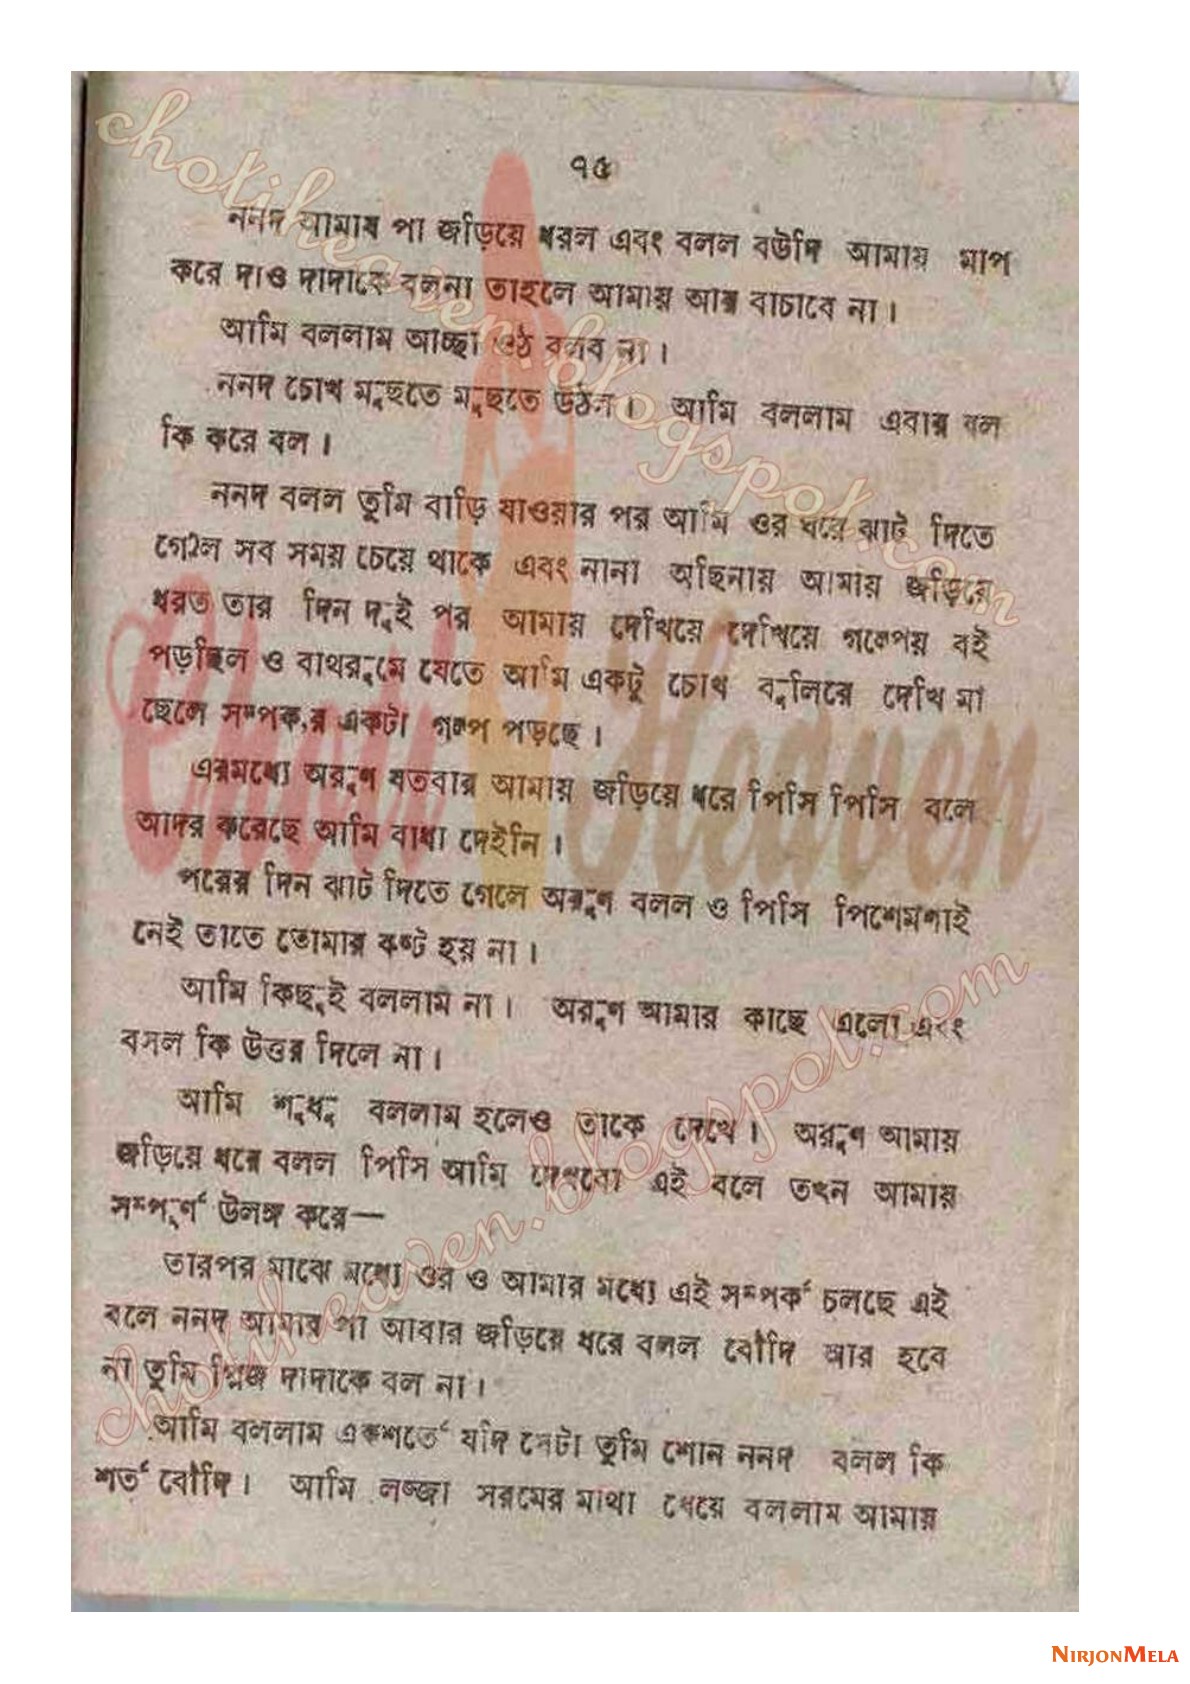 ৭৫
ননদ আমায় পা জড়িয়ে ধরল এবং বলল বউদি আমায় মাপ
করে দাও দাদাকে বলনা তাহলে আমায় আর বাচাবে না।
আমি বললাম আচ্ছা ওঠ বলব না।
ননদ চোখ মুছতে মুছতে উঠল। আমি বললাম এবার বল
কি করে বল।
ননদ বলল তুমি বাড়ি যাওয়ার পর আমি ওর ঘরে ঝাট দিতে
গেলে সব সময় চেয়ে থাকে এবং নানা অছিনায় আমায় জড়িয়ে
ধরত তার দিন দুই পর আমায় দেখিয়ে দেখিয়ে গল্পেয় বই
পড়ছিল ও বাথরুমে যেতে আমি একটু চোখ বুলিরে দেখি মা
ছেলে সম্পক,র একটা গল্প পড়ছে।
এরমধ্যে অরুণ যতবার আমায় জড়িয়ে ধরে পিসি পিসি বলে
আদর করেছে আমি বাধা দেইনি।
পরের দিন ঝাট দিতে গেলে অরুণ বলল ও পিসি পিশেমশাই
নেই তাতে তোমার কষ্ট হয় না।
আমি কিছুই বললাম না। অরুণ আমার কাছে এলো এবং
বসল কি উত্তর দিলে না।
আমি শুধু বললাম হলেও তাকে দেখে। অরুণ আমায়
জড়িয়ে ধরে বলল পিসি আমি দেখবো এই বলে তখন আমায়
সম্পূর্ণ উলঙ্গ করে—
তারপর মাঝে মধ্যে ওর ও আমার মধ্যে এই সম্পর্ক চলছে এই
বলে ননদ আমার পা আবার জড়িয়ে ধরে বলল বৌদি আর হবে
না তুমি প্লিজ দাদাকে বল না।
আমি বললাম একশর্তে যদি সেটা তুমি শোন ননদ বলল কি
শর্ত বৌদি। আমি লজ্জা সরমের মাথা খেয়ে বললাম আমায়
chotiheaven.blogspot.com
Choti Heaven
chotiheaven.blogspot.com
NIRJONMELA